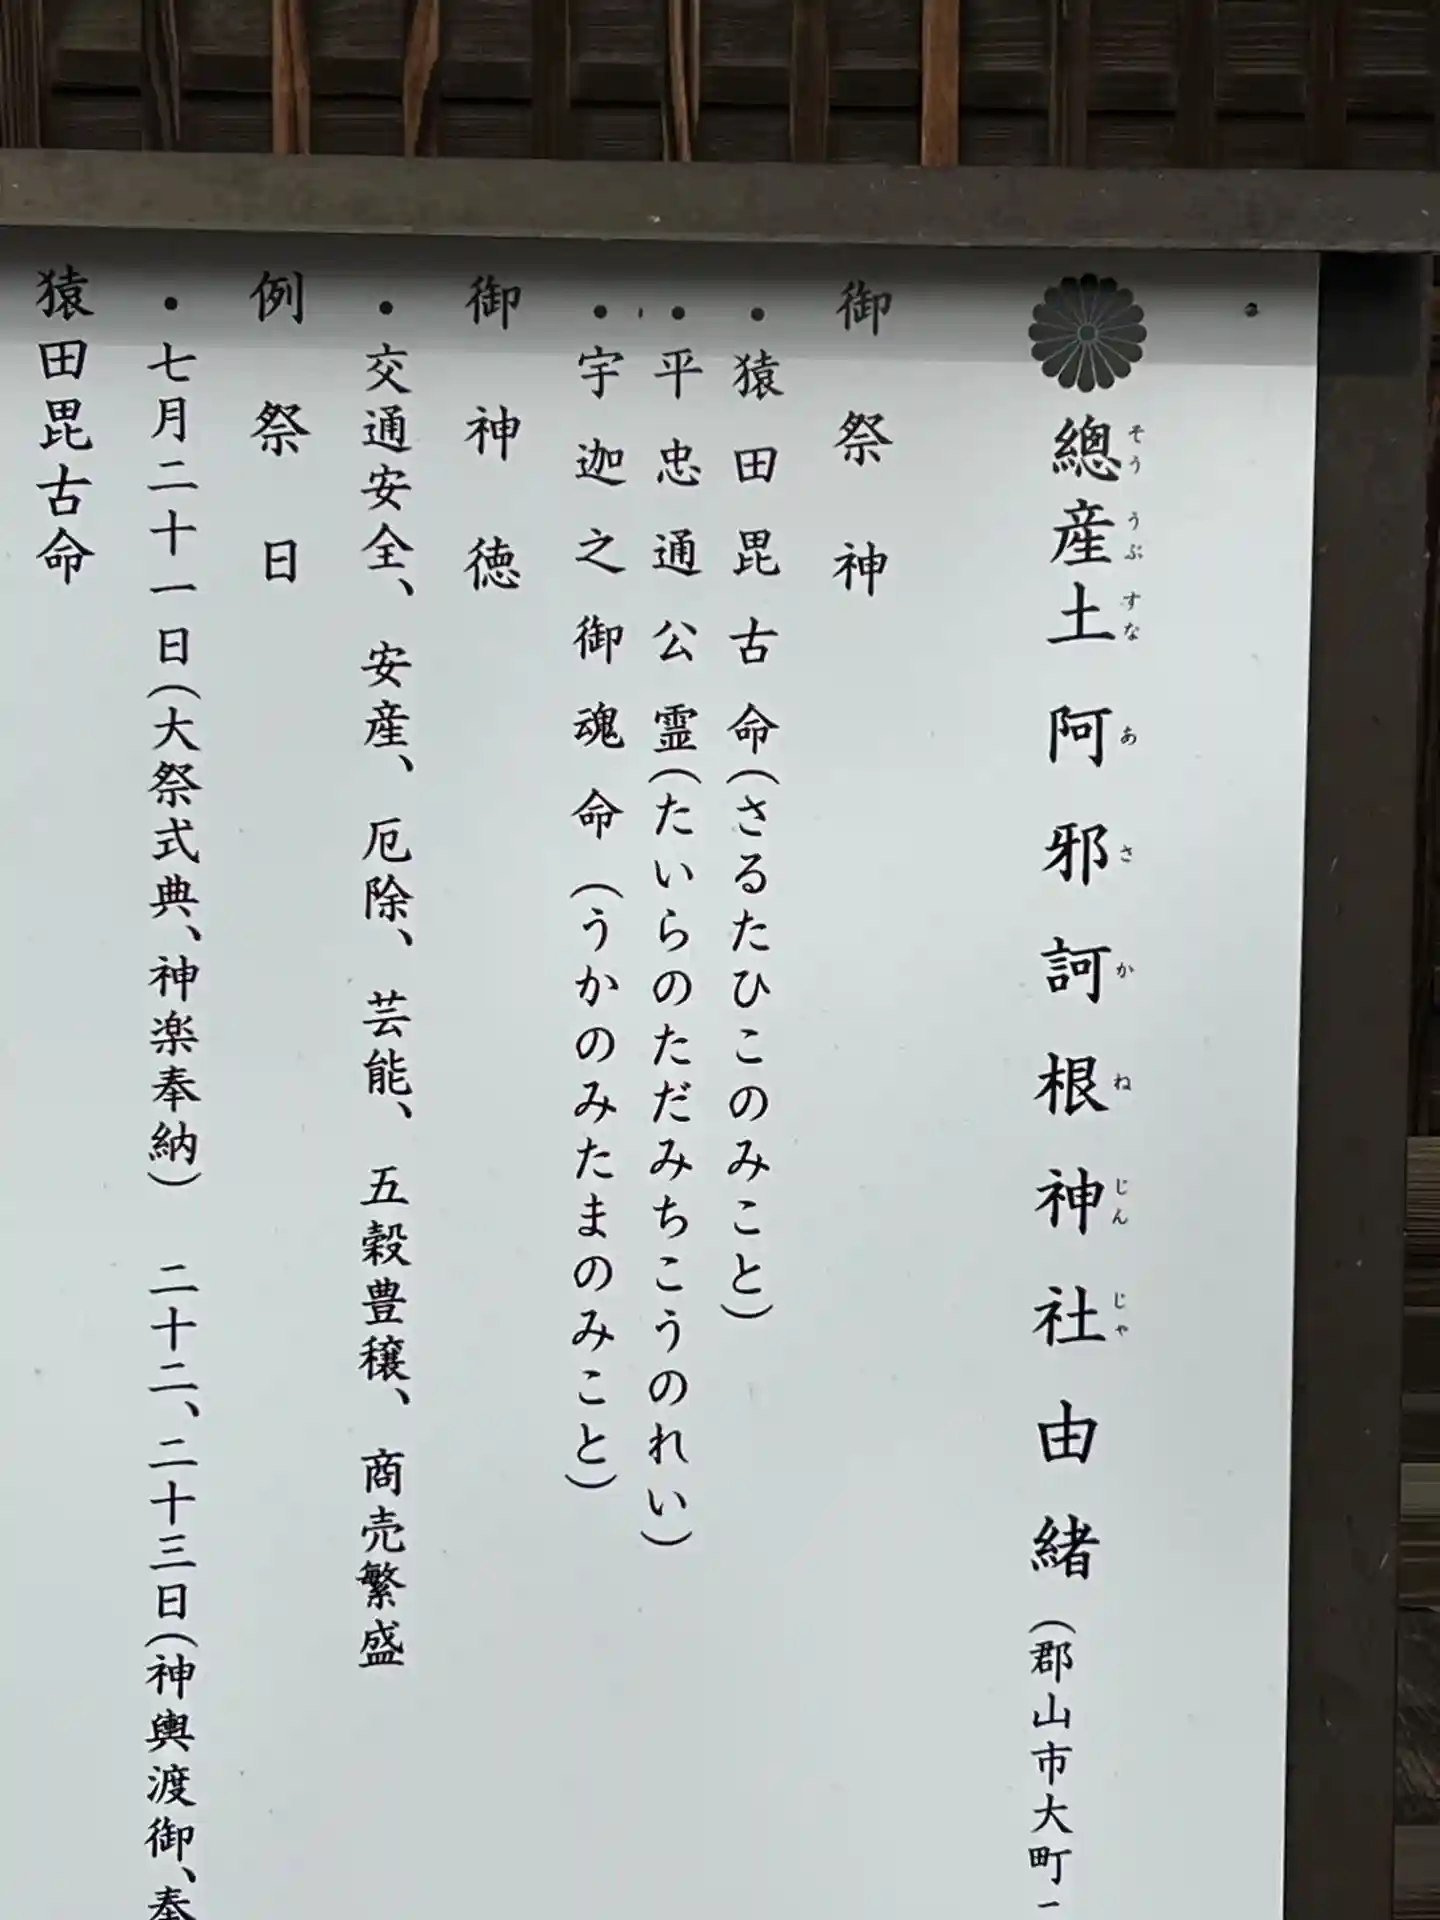 總産土 阿邪訶根神社由緒（郡山市大町
そううぶすな あさかねじんじゃ
御祭神
・猿田毘古命（さるたひこのみこと）
・平忠通公霊（たいらのただみちこうのれい）
・宇迦之御魂命（うかのみたまのみこと）
御神徳
・交通安全、安産、厄除、芸能、五穀豊穣、商売繁盛
例祭日
・七月二十一日（大祭式典、神楽奉納） 二十二、二十三日（神輿渡御、奉
猿田毘古命